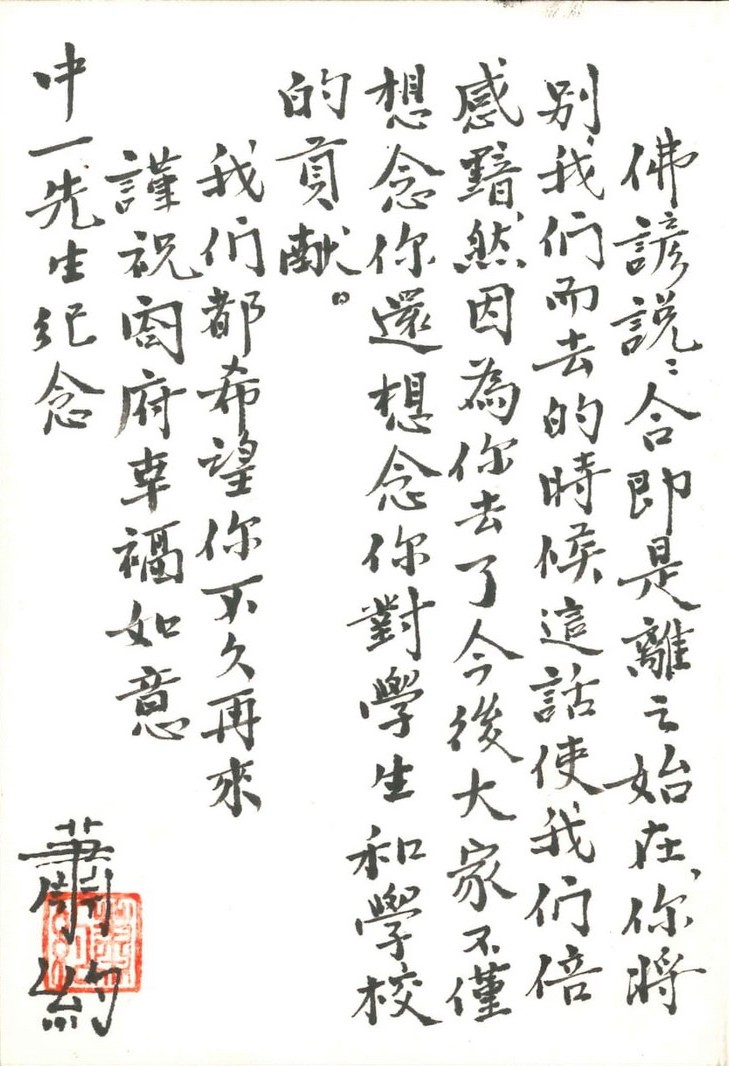 佛諺說：合即是離之始在，你將
別我们而去的時候這話使我们倍
感黯然因為你去了今後大家不僅
想念你還想念你對學生和學校
的貢献。
我们都希望你不久再來
謹祝閤府幸福如意
中一先生紀念
蕭約